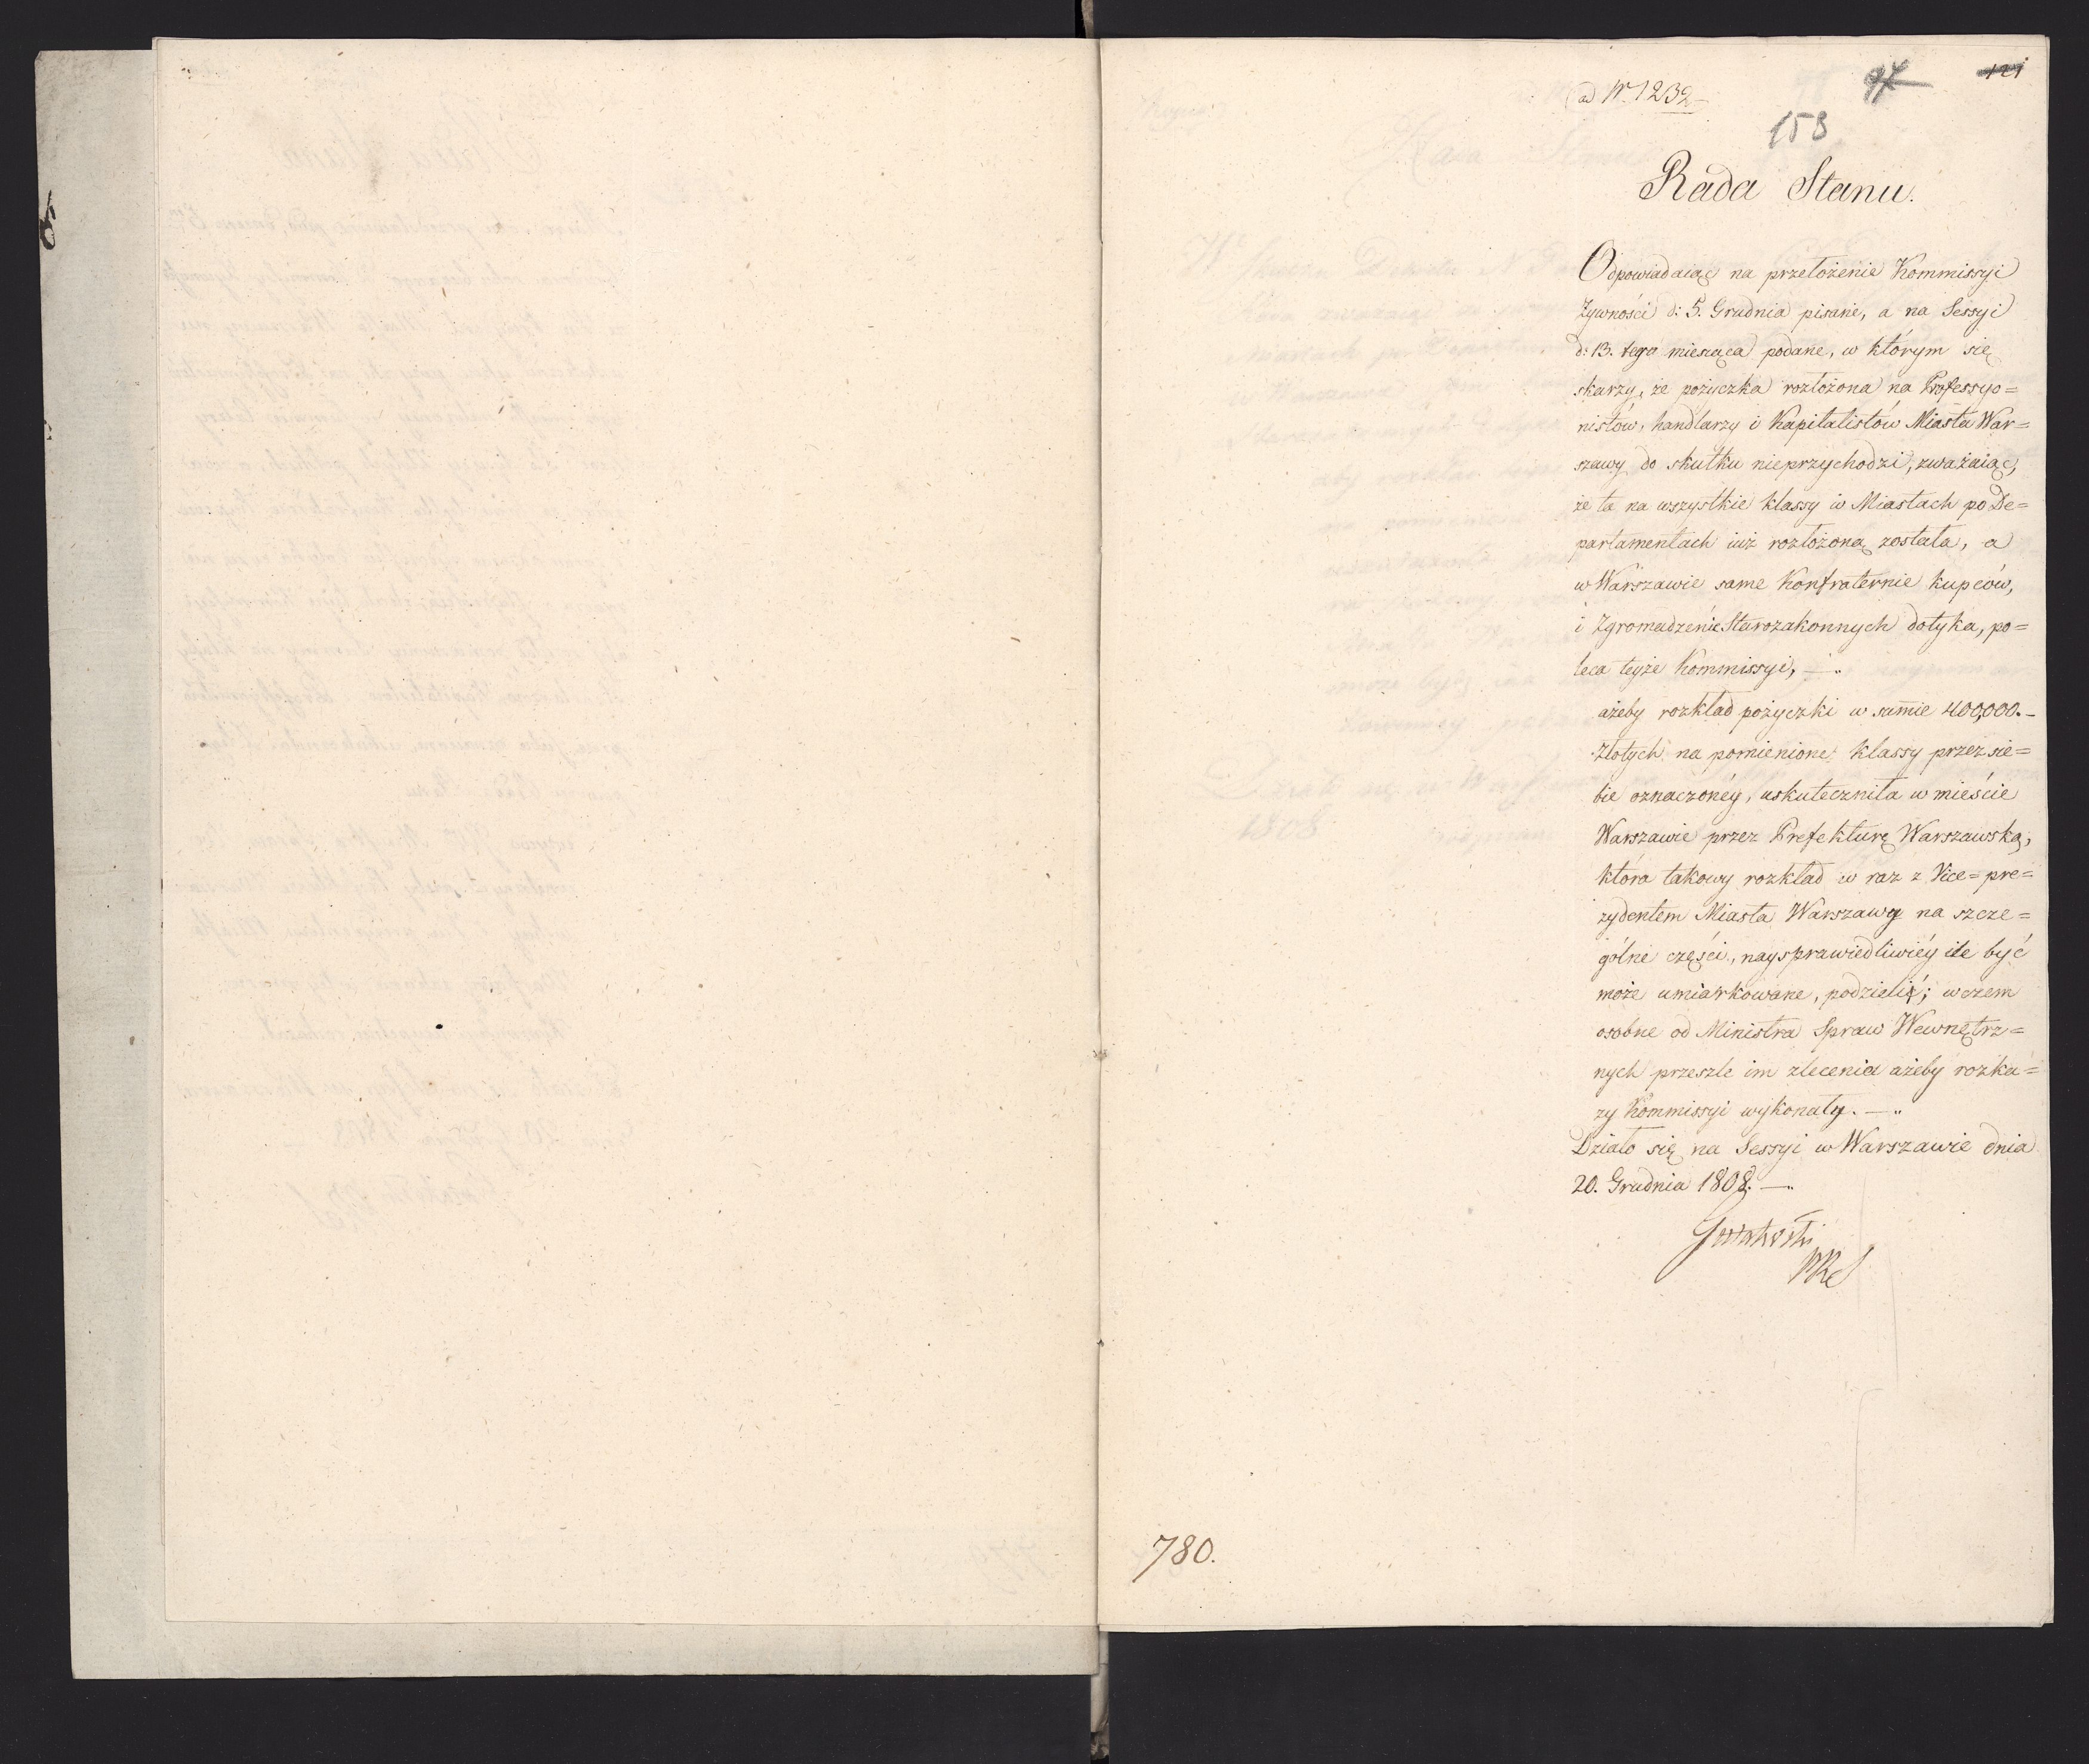 ad Nr 1232
97
121
153
Rada Stanu.
Odpowiadaiąc na przełożenie Kommissyi
Żywności d: 5. Grudnia pisane, a na Sessyi
d: 13. tego miesząca podane, w którym się
skarży, że pożyczka rozłożona na Professyo=
nistów, handlarzy i Kapitalistów Miasta War=
szawy do skutku nieprzychodzi, zważaiąc,
że ta na wszystkie klassy w Miastach po De=
partamentach iuż rozłożoną została, a
w Warszawie same Konfraternie kupców,
i Zgromadzenie Starozakonnych dotyka, po=
leca teyże Kommissyi, —..
ażeby rozkład pożyczki w sum̄ie 400,000.–
Złotych na pomienione klassy przez sie=
bie oznaczonéy, uskuteczniła w mieście
Warszawie przez Prefekturę Warszawską,
która takowy rozkład w raz z Vice=pre=
zydentem Miasta Warszawy na szcze=
gólne części, naysprawiedliwiéy ile być
może umiarkowane, podzielić; w czem
osobne od Ministra Spraw Wewnętrz=
nych przeszle im zlecenia ażeby rozka=
zy Kommissyi wykonały. —..
Działo się na Sessyi w Warszawie dnia
20. Grudnia 1808. —..
780.